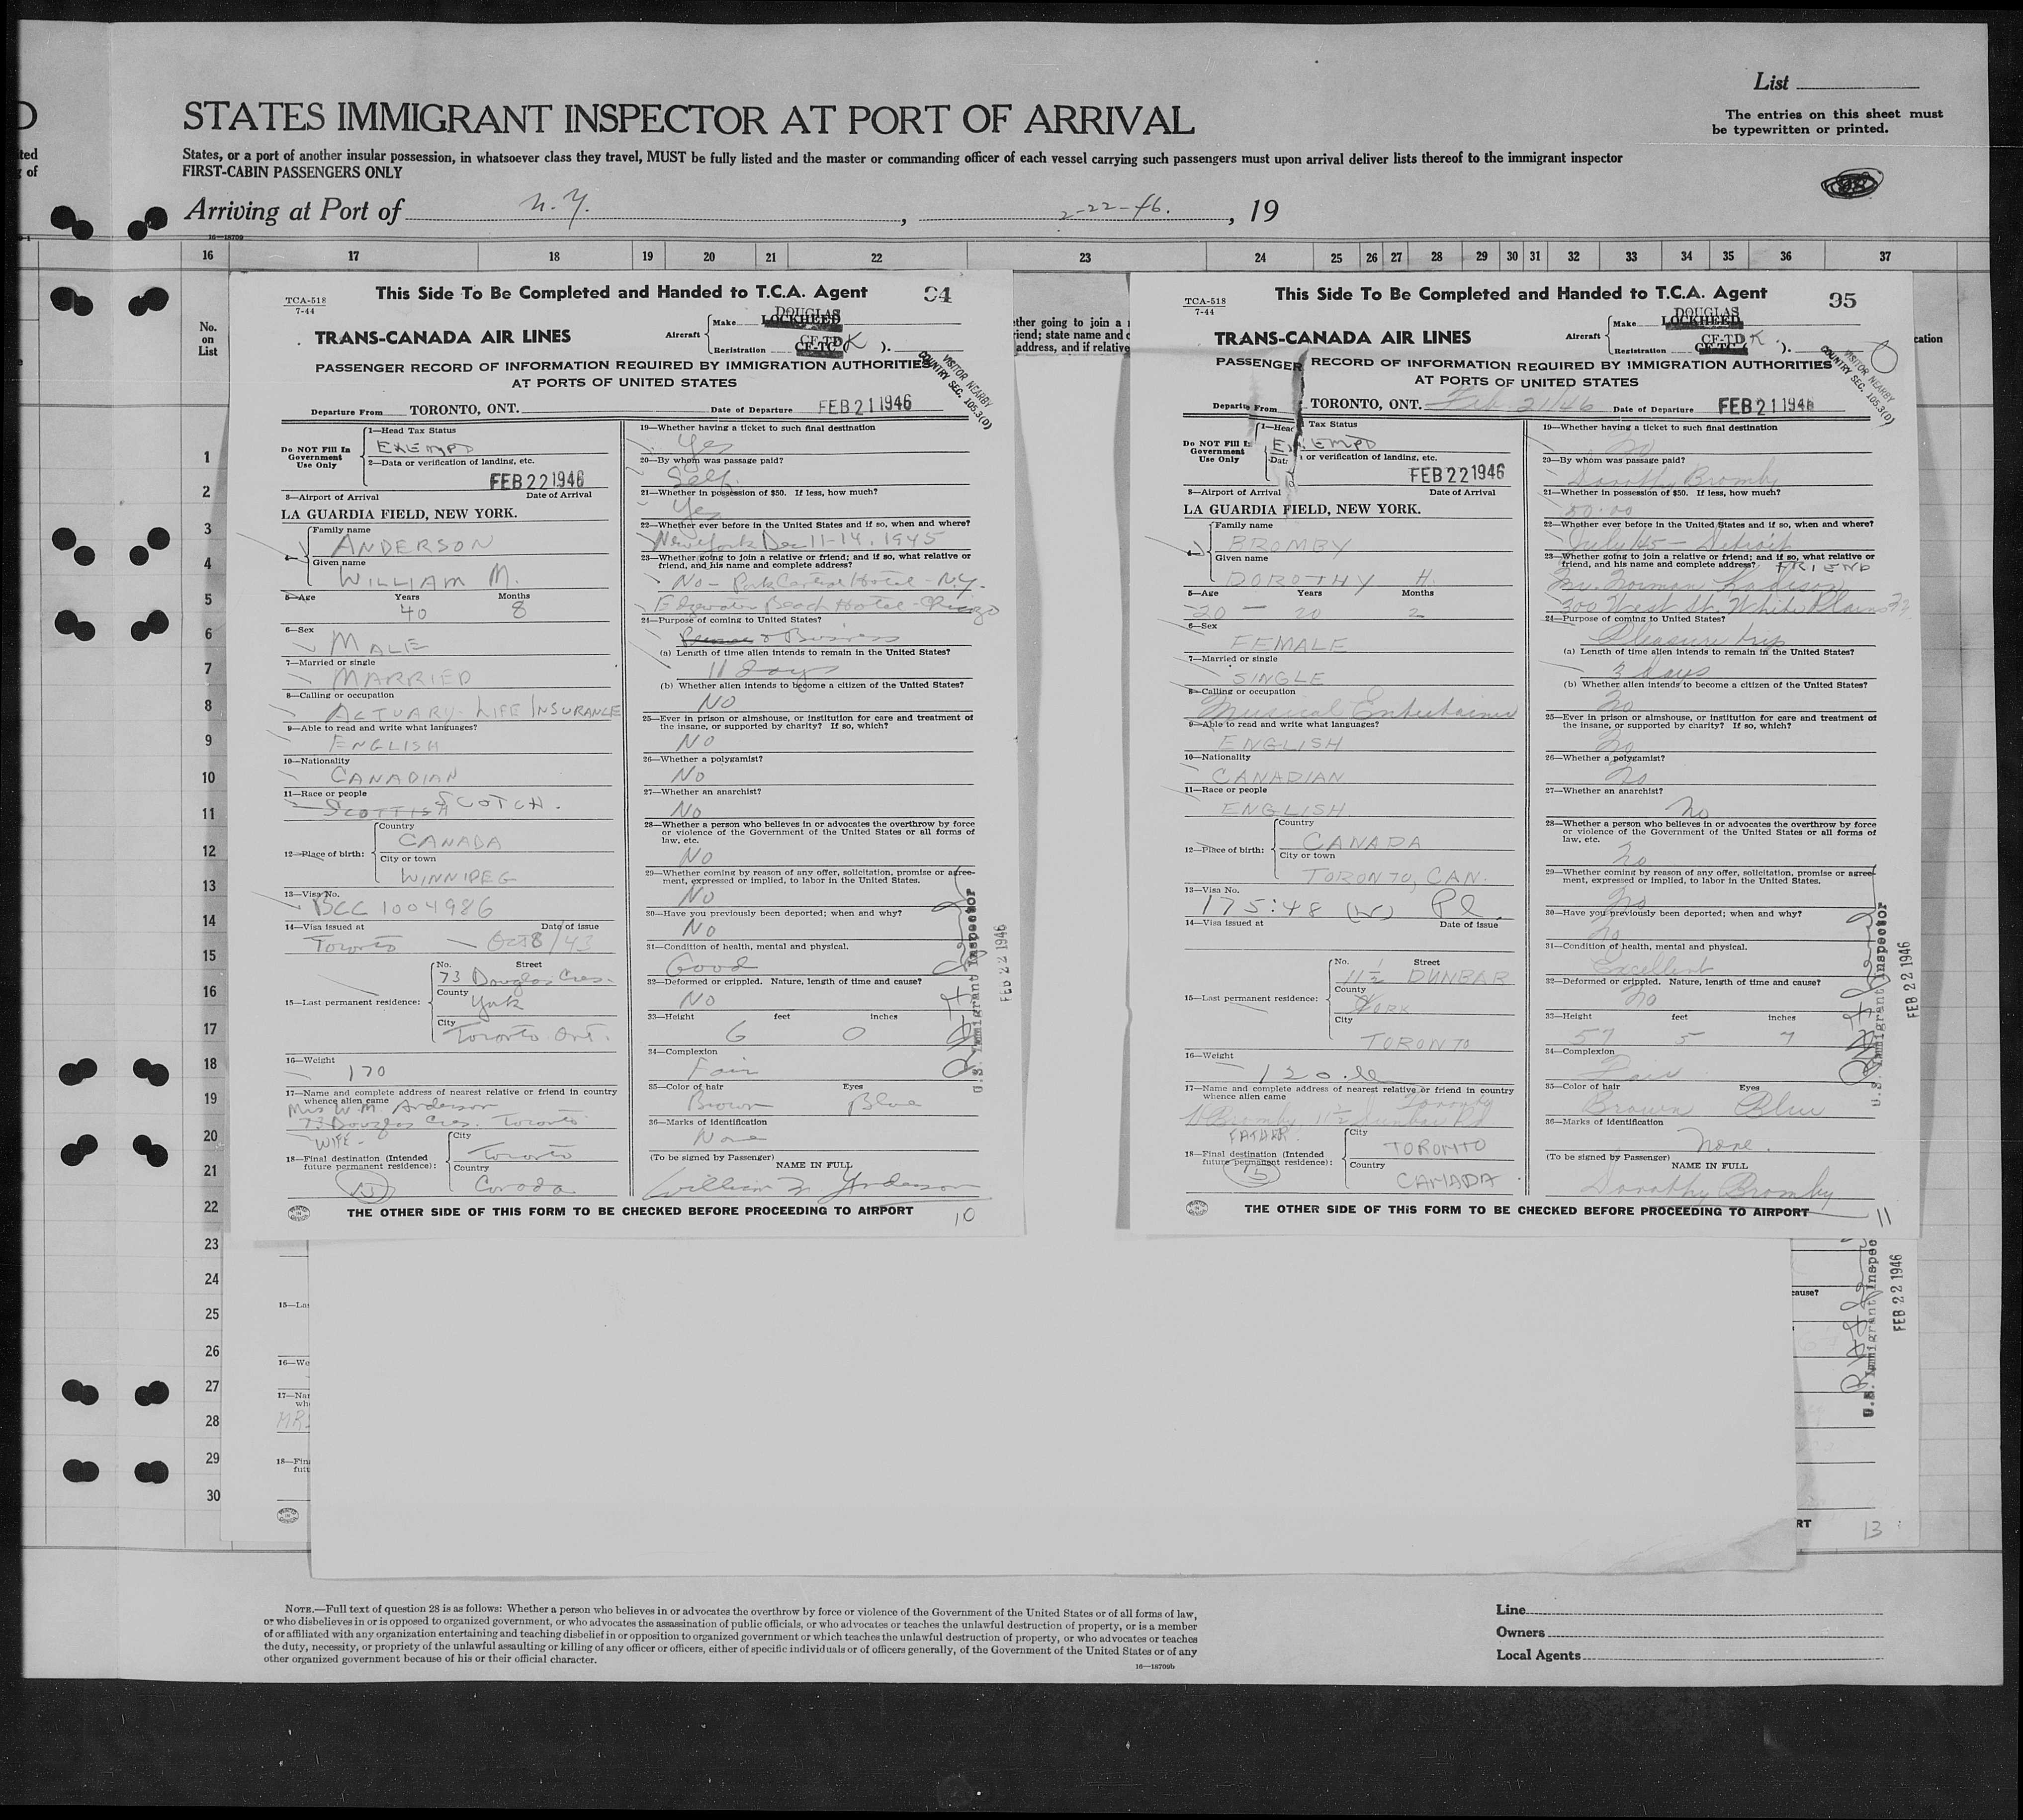 List
The entries on this sheet must
be typewritten or printed.
STATES IMMIGRANT INSPECTOR AT PORT OF ARRIVAL
States, or a port of another insular possession, in whatsoever class they travel, MUST be fully listed and the master or commanding officer of each vessel carrying such passengers must upon arrival deliver lists thereof to the immigrant inspector
FIRST-CABIN PASSENGERS ONLY
Arriving at Port of N.Y. , 2-22-46. , 19
16 17 18 19 20 21 22 23 24 25 26 27 28 29 30 31 32 33 34 35 36 37
No.
on
List
1
2
3
4
5
6
7
8
9
10
11
12
13
14
15
16
17
18
19
20
21
22
23
24
25
26
27
28
29
30
TCA-518
7-44
This Side To Be Completed and Handed to T.C.A. Agent
94
TRANS-CANADA AIR LINES
Aircraft
Make DOUGLAS
LOCKHEED
Registration CF-TD K ).
PASSENGER RECORD OF INFORMATION REQUIRED BY IMMIGRATION AUTHORITIES
AT PORTS OF UNITED STATES
VISITOR NEARBY
COUNTRY SEC. 105.3(D)
Departure From TORONTO, ONT. Date of Departure FEB 21 1946
Do NOT Fill In
Government
Use Only
1—Head Tax Status
EXEMPD
2—Data or verification of landing, etc.
FEB 22 1946
3—Airport of Arrival Date of Arrival
LA GUARDIA FIELD, NEW YORK.
4—
Family name
ANDERSON
Given name
WILLIAM M.
5—Age Years Months
40 8
6—Sex
MALE
7—Married or single
MARRIED
8—Calling or occupation
ACTUARY - LIFE INSURANCE
9—Able to read and write what languages?
ENGLISH
10—Nationality
CANADIAN
11—Race or people
SCOTTISH SCOTCH.
12—Place of birth:
Country
CANADA
City or town
WINNIPEG
13—Visa No.
BCC 1004986
14—Visa issued at Date of issue
Toronto — Oct 8/43
15—Last permanent residence:
No. Street
73 Douglas Cres.
County
York
City
Toronto Ont.
16—Weight
170
17—Name and complete address of nearest relative or friend in country
whence alien came
Mrs W.M. Anderson
73 Douglas Cres. Toronto
WIFE -
18—Final destination (Intended
future permanent residence):
City
Toronto
Country
Canada
19—Whether having a ticket to such final destination
Yes
20—By whom was passage paid?
Self.
21—Whether in possession of $50. If less, how much?
Yes
22—Whether ever before in the United States and if so, when and where?
New York Dec 11-14, 1945
23—Whether going to join a relative or friend; and if so, what relative or
friend, and his name and complete address?
No - Park Central Hotel - N.Y.
Edgewater Beach Hotel - Chicago
24—Purpose of coming to United States?
& Business
(a) Length of time alien intends to remain in the United States?
11 days
(b) Whether alien intends to become a citizen of the United States?
NO
25—Ever in prison or almshouse, or institution for care and treatment of
the insane, or supported by charity? If so, which?
NO
26—Whether a polygamist?
NO
27—Whether an anarchist?
NO
28—Whether a person who believes in or advocates the overthrow by force
or violence of the Government of the United States or all forms of
law, etc.
NO
29—Whether coming by reason of any offer, solicitation, promise or agree-
ment, expressed or implied, to labor in the United States.
NO
30—Have you previously been deported; when and why?
NO
31—Condition of health, mental and physical.
Good
32—Deformed or crippled. Nature, length of time and cause?
NO
33—Height feet inches
6 0
34—Complexion
Fair
35—Color of hair Eyes
Brown Blue
36—Marks of identification
None
(To be signed by Passenger)
NAME IN FULL
William M Anderson
THE OTHER SIDE OF THIS FORM TO BE CHECKED BEFORE PROCEEDING TO AIRPORT
10
U.S. Immigrant Inspector
FEB 22 1946
TCA-518
7-44
This Side To Be Completed and Handed to T.C.A. Agent
95
TRANS-CANADA AIR LINES
Aircraft
Make DOUGLAS
LOCKHEED
Registration CF-TD K ).
PASSENGER RECORD OF INFORMATION REQUIRED BY IMMIGRATION AUTHORITIES
AT PORTS OF UNITED STATES
VISITOR NEARBY
COUNTRY SEC. 105.3(D)
From TORONTO, ONT. Feb 21/46 Date of Departure FEB 21 1946
Do NOT Fill In
Government
Use Only
1—Head Tax Status
EXEMPD
or verification of landing, etc.
FEB 22 1946
3—Airport of Arrival Date of Arrival
LA GUARDIA FIELD, NEW YORK.
Family name
BROMBY
Given name
DOROTHY H.
5—Age Years Months
20 — 20 2
6—Sex
FEMALE
7—Married or single
SINGLE
8—Calling or occupation
Musical Entertainer
9—Able to read and write what languages?
ENGLISH
10—Nationality
CANADIAN
11—Race or people
ENGLISH.
12—Place of birth:
Country
CANADA
City or town
TORONTO, CAN.
13—Visa No.
175:48 (W) Pl.
14—Visa issued at Date of issue
15—Last permanent residence:
No. Street
11½ DUNBAR
County
YORK
City
TORONTO
16—Weight
120
17—Name and complete address of nearest relative or friend in country
whence alien came Toronto
Bromby, 11½ Dunbar Rd
FATHER.
18—Final destination (Intended
future permanent residence):
15
City
TORONTO
Country
CANADA
19—Whether having a ticket to such final destination
No
20—By whom was passage paid?
Dorothy Bromby
21—Whether in possession of $50. If less, how much?
50.00
22—Whether ever before in the United States and if so, when and where?
July/45 — Detroit
23—Whether going to join a relative or friend; and if so, what relative or
friend, and his name and complete address? FRIEND
Mr. Norman
300 West St. White Plains
24—Purpose of coming to United States?
Pleasure trip
(a) Length of time alien intends to remain in the United States?
3 days
(b) Whether alien intends to become a citizen of the United States?
No
25—Ever in prison or almshouse, or institution for care and treatment of
the insane, or supported by charity? If so, which?
No
26—Whether a polygamist?
No
27—Whether an anarchist?
No
28—Whether a person who believes in or advocates the overthrow by force
or violence of the Government of the United States or all forms of
law, etc.
No
29—Whether coming by reason of any offer, solicitation, promise or agree-
ment, expressed or implied, to labor in the United States.
No
30—Have you previously been deported; when and why?
No
31—Condition of health, mental and physical.
Excellent
32—Deformed or crippled. Nature, length of time and cause?
No
33—Height feet inches
57 5 7
34—Complexion
Fair
35—Color of hair Eyes
Brown Blue
36—Marks of identification
None.
(To be signed by Passenger)
NAME IN FULL
Dorothy Bromby
THE OTHER SIDE OF THIS FORM TO BE CHECKED BEFORE PROCEEDING TO AIRPORT
11
U.S. Immigrant Inspector
FEB 22 1946
U.S. Immigrant Inspec
FEB 22 1946
13
NOTE.—Full text of question 28 is as follows: Whether a person who believes in or advocates the overthrow by force or violence of the Government of the United States or of all forms of law,
or who disbelieves in or is opposed to organized government, or who advocates the assassination of public officials, or who advocates or teaches the unlawful destruction of property, or is a member
of or affiliated with any organization entertaining and teaching disbelief in or opposition to organized government or which teaches the unlawful destruction of property, or who advocates or teaches
the duty, necessity, or propriety of the unlawful assaulting or killing of any officer or officers, either of specific individuals or of officers generally, of the Government of the United States or of any
other organized government because of his or their official character.
16—18709b
Line
Owners
Local Agents